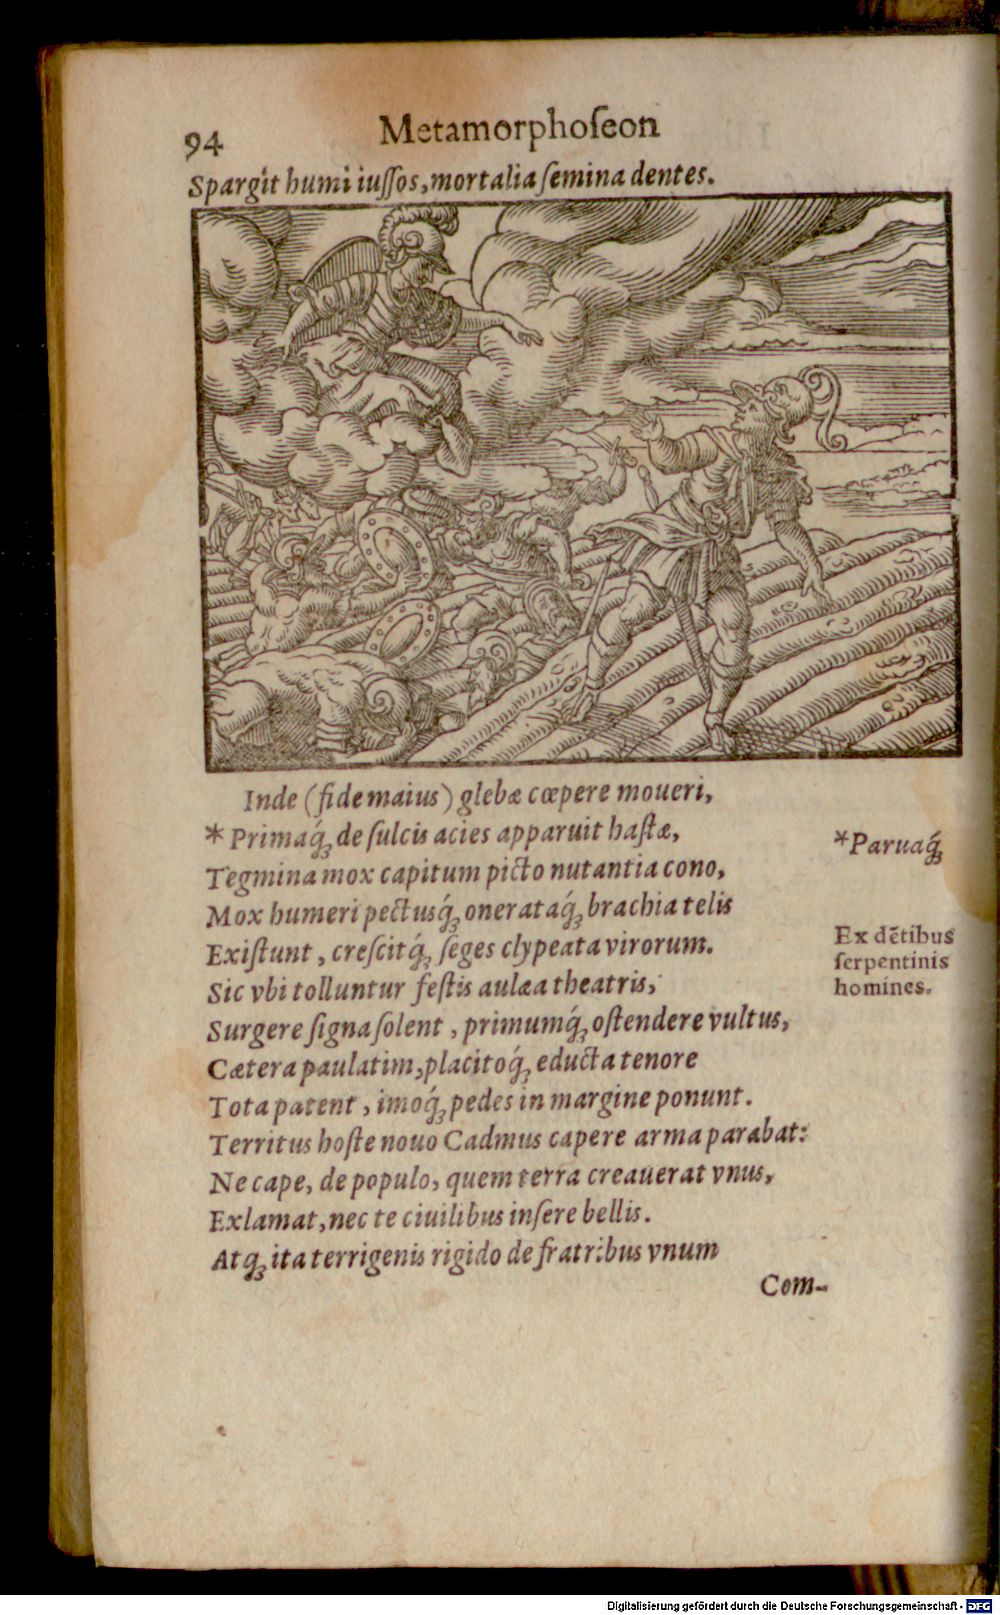 94
Metamorphoſeon
Spargit humi iuſſos, mortalia ſemina dentes.
Inde (fide maius) glebæ cœpere moueri,
*Primaq́ꝫ de ſulcis acies apparuit haſtæ,
*Paruaq́ꝫ
Tegmina mox capitum picto nutantia cono,
Mox humeri pectusq́ꝫ onerataq́ꝫ brachia telis
Exiſtunt, creſcitq́ꝫ ſeges clypeata virorum.
Ex dẽtibus
ſerpentinis
homines.
Sic vbi tolluntur feſtis aulæa theatris,
Surgere ſigna ſolent, primumq́ꝫ oſtendere vultus,
Cætera paulatim, placitoq́ꝫ educta tenore
Tota patent, imoq́ꝫ pedes in margine ponunt.
Territus hoſte nouo Cadmus capere arma parabat:
Ne cape, de populo, quem terra creauerat vnus,
Exlamat, nec te ciuilibus inſere bellis.
Atqꝫ ita terrigenis rigido de fratribus vnum
Com-
Digitalisierung gefördert durch die Deutsche Forschungsgemeinschaft - DFG